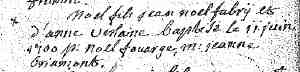 noel fils jean noel fabri et
d'anne verlaine baptisé le 11 juin
1700 p. noel fouarge, m. jeanne